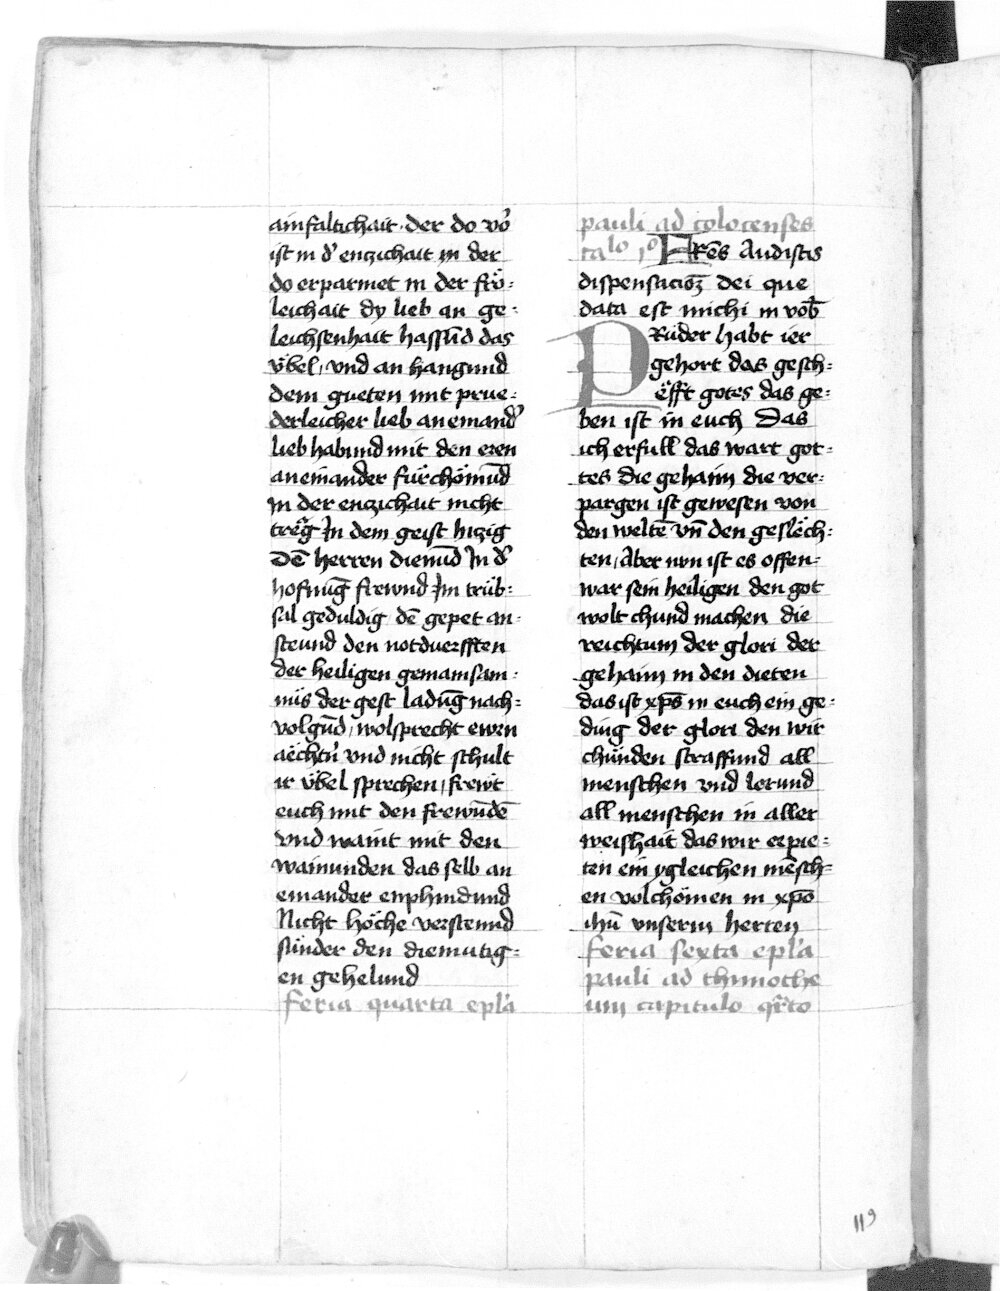 ainfaltichait. der do vō
ist in dˀ enczichait in der
do erparmet in der frö⸗
leichait dy lieb an ge⸗
leichsenhait hassūd das
v̈bel, vnd an hangund
dem gueten mit prue⸗
derleicher lieb aneinandˀ
lieb habund mit den eren
aneinander fürchömūd
In der enczichait nicht
treg̈ In dem geist hiczig
Dē herren dienūd In dˀ
hofnūg frewnd Im trüb⸗
sal geduldig dē gepet an⸗
steund den notduerfften
der heiligen gemainsam⸗
nüs der gest ladūg nach⸗
volgūd, wolsprecht ewrn
aëchtnˀ vnd nicht schult
ir v̈bel sprechen, frewt
euch mit den frewūdē
vnd waint mit den
wainunden das selb an
einander enphindund
Nicht höche versteund
sünder den diemutig⸗
en gehelund
feria quarta epl'a
pauli ad colocenses
ca^lo 1^o FRēs Audistis
dispensacioꝫ dei que
data est michi in vob̄
PRüder habt ier
gehort das gesch⸗
ëfft gotes das ge⸗
ben ist in euch Das
ich erfull das wart got⸗
tes die gehaim die ver⸗
pargen ist gewesen von
den weltē vn̄ den geslëch⸗
ten, Aber nun ist es offen⸗
war sein heiligen den got
wolt chund machen die
reichtum der glori der
gehaim in den dieten
das ist xp̄s in euch ein ge⸗
ding der glori den wir
chünden straffund all
menschen vnd lerund
all menschen in aller
weishait das wir erpie⸗
ten ein ygleichen mēsch⸗
en volchömen in xp̄o
ihū vnserm herren
feria sexta epl'a
pauli ad thimothe
um capitulo qrto
119